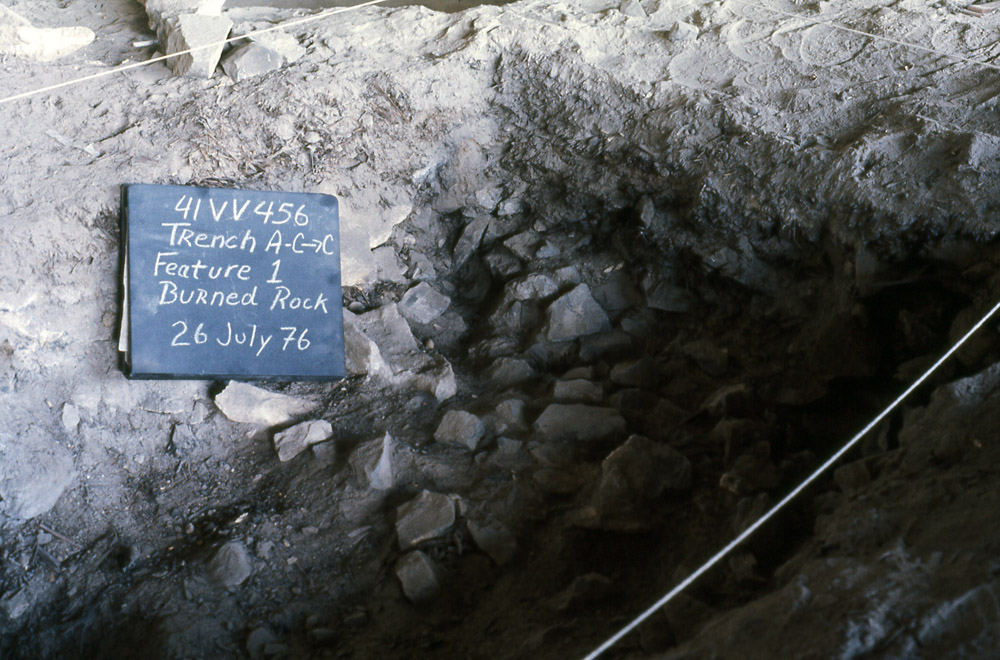 41VV456
Trench A-C→C
Feature 1
Burned Rock
26 July 76